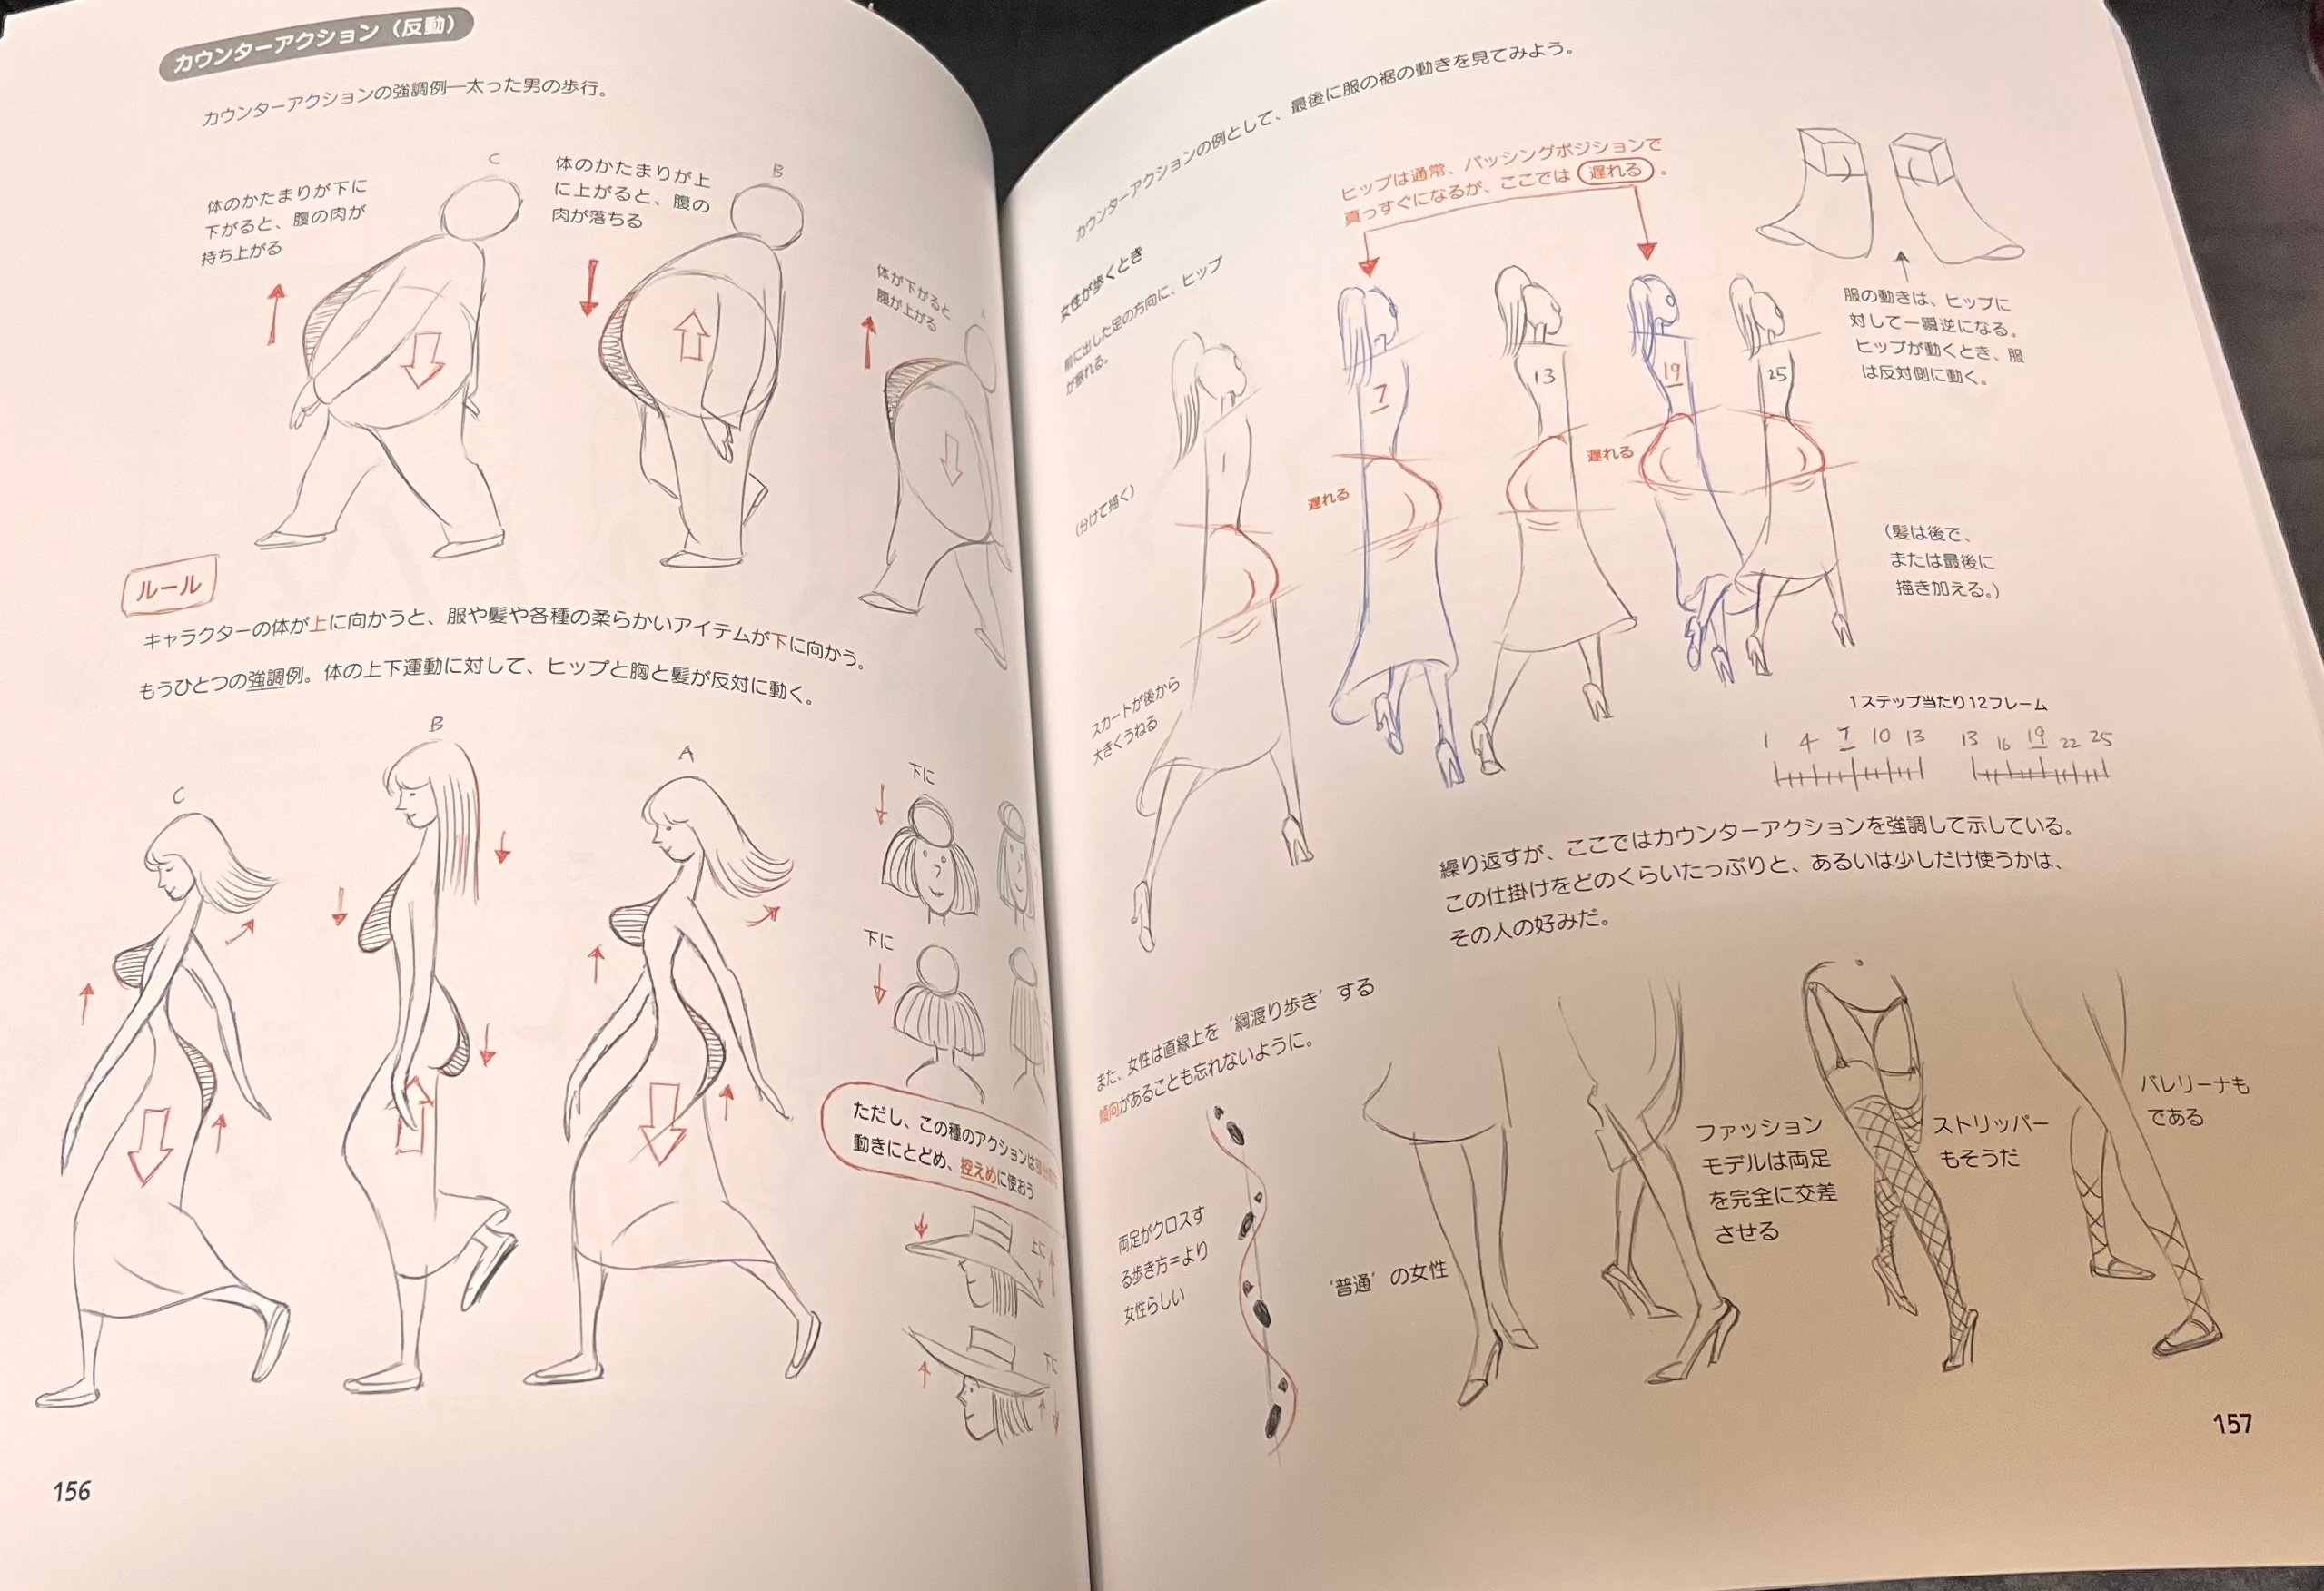 カウンターアクション（反動）
カウンターアクションの強調例―太った男の歩行。
C
体のかたまりが下に
下がると、腹の肉が
持ち上がる
B
体のかたまりが上
に上がると、腹の
肉が落ちる
A
体が下がると
腹が上がる
ルール
キャラクターの体が上に向かうと、服や髪や各種の柔らかいアイテムが下に向かう。
もうひとつの強調例。体の上下運動に対して、ヒップと胸と髪が反対に動く。
C
B
A
下に
下に
ただし、この種のアクションは
動きにとどめ、控えめに使おう
上に
下に
156
カウンターアクションの例として、最後に服の裾の動きを見てみよう。
女性が歩くとき
前に出した足の方向に、ヒップ
が振れる。
ヒップは通常、パッシングポジションで
真っすぐになるが、ここでは 遅れる 。
(分けて描く)
スカートが後から
大きくうねる
1
7
13
19
25
遅れる
遅れる
服の動きは、ヒップに
対して一瞬逆になる。
ヒップが動くとき、服
は反対側に動く。
(髪は後で、
または最後に
描き加える。)
1ステップ当たり12フレーム
1 4 7 10 13 13 16 19 22 25
繰り返すが、ここではカウンターアクションを強調して示している。
この仕掛けをどのくらいたっぷりと、あるいは少しだけ使うかは、
その人の好みだ。
また、女性は直線上を‘綱渡り歩き’する
傾向があることも忘れないように。
両足がクロスす
る歩き方＝より
女性らしい
‘普通’の女性
ファッション
モデルは両足
を完全に交差
させる
ストリッパー
もそうだ
バレリーナも
である
157